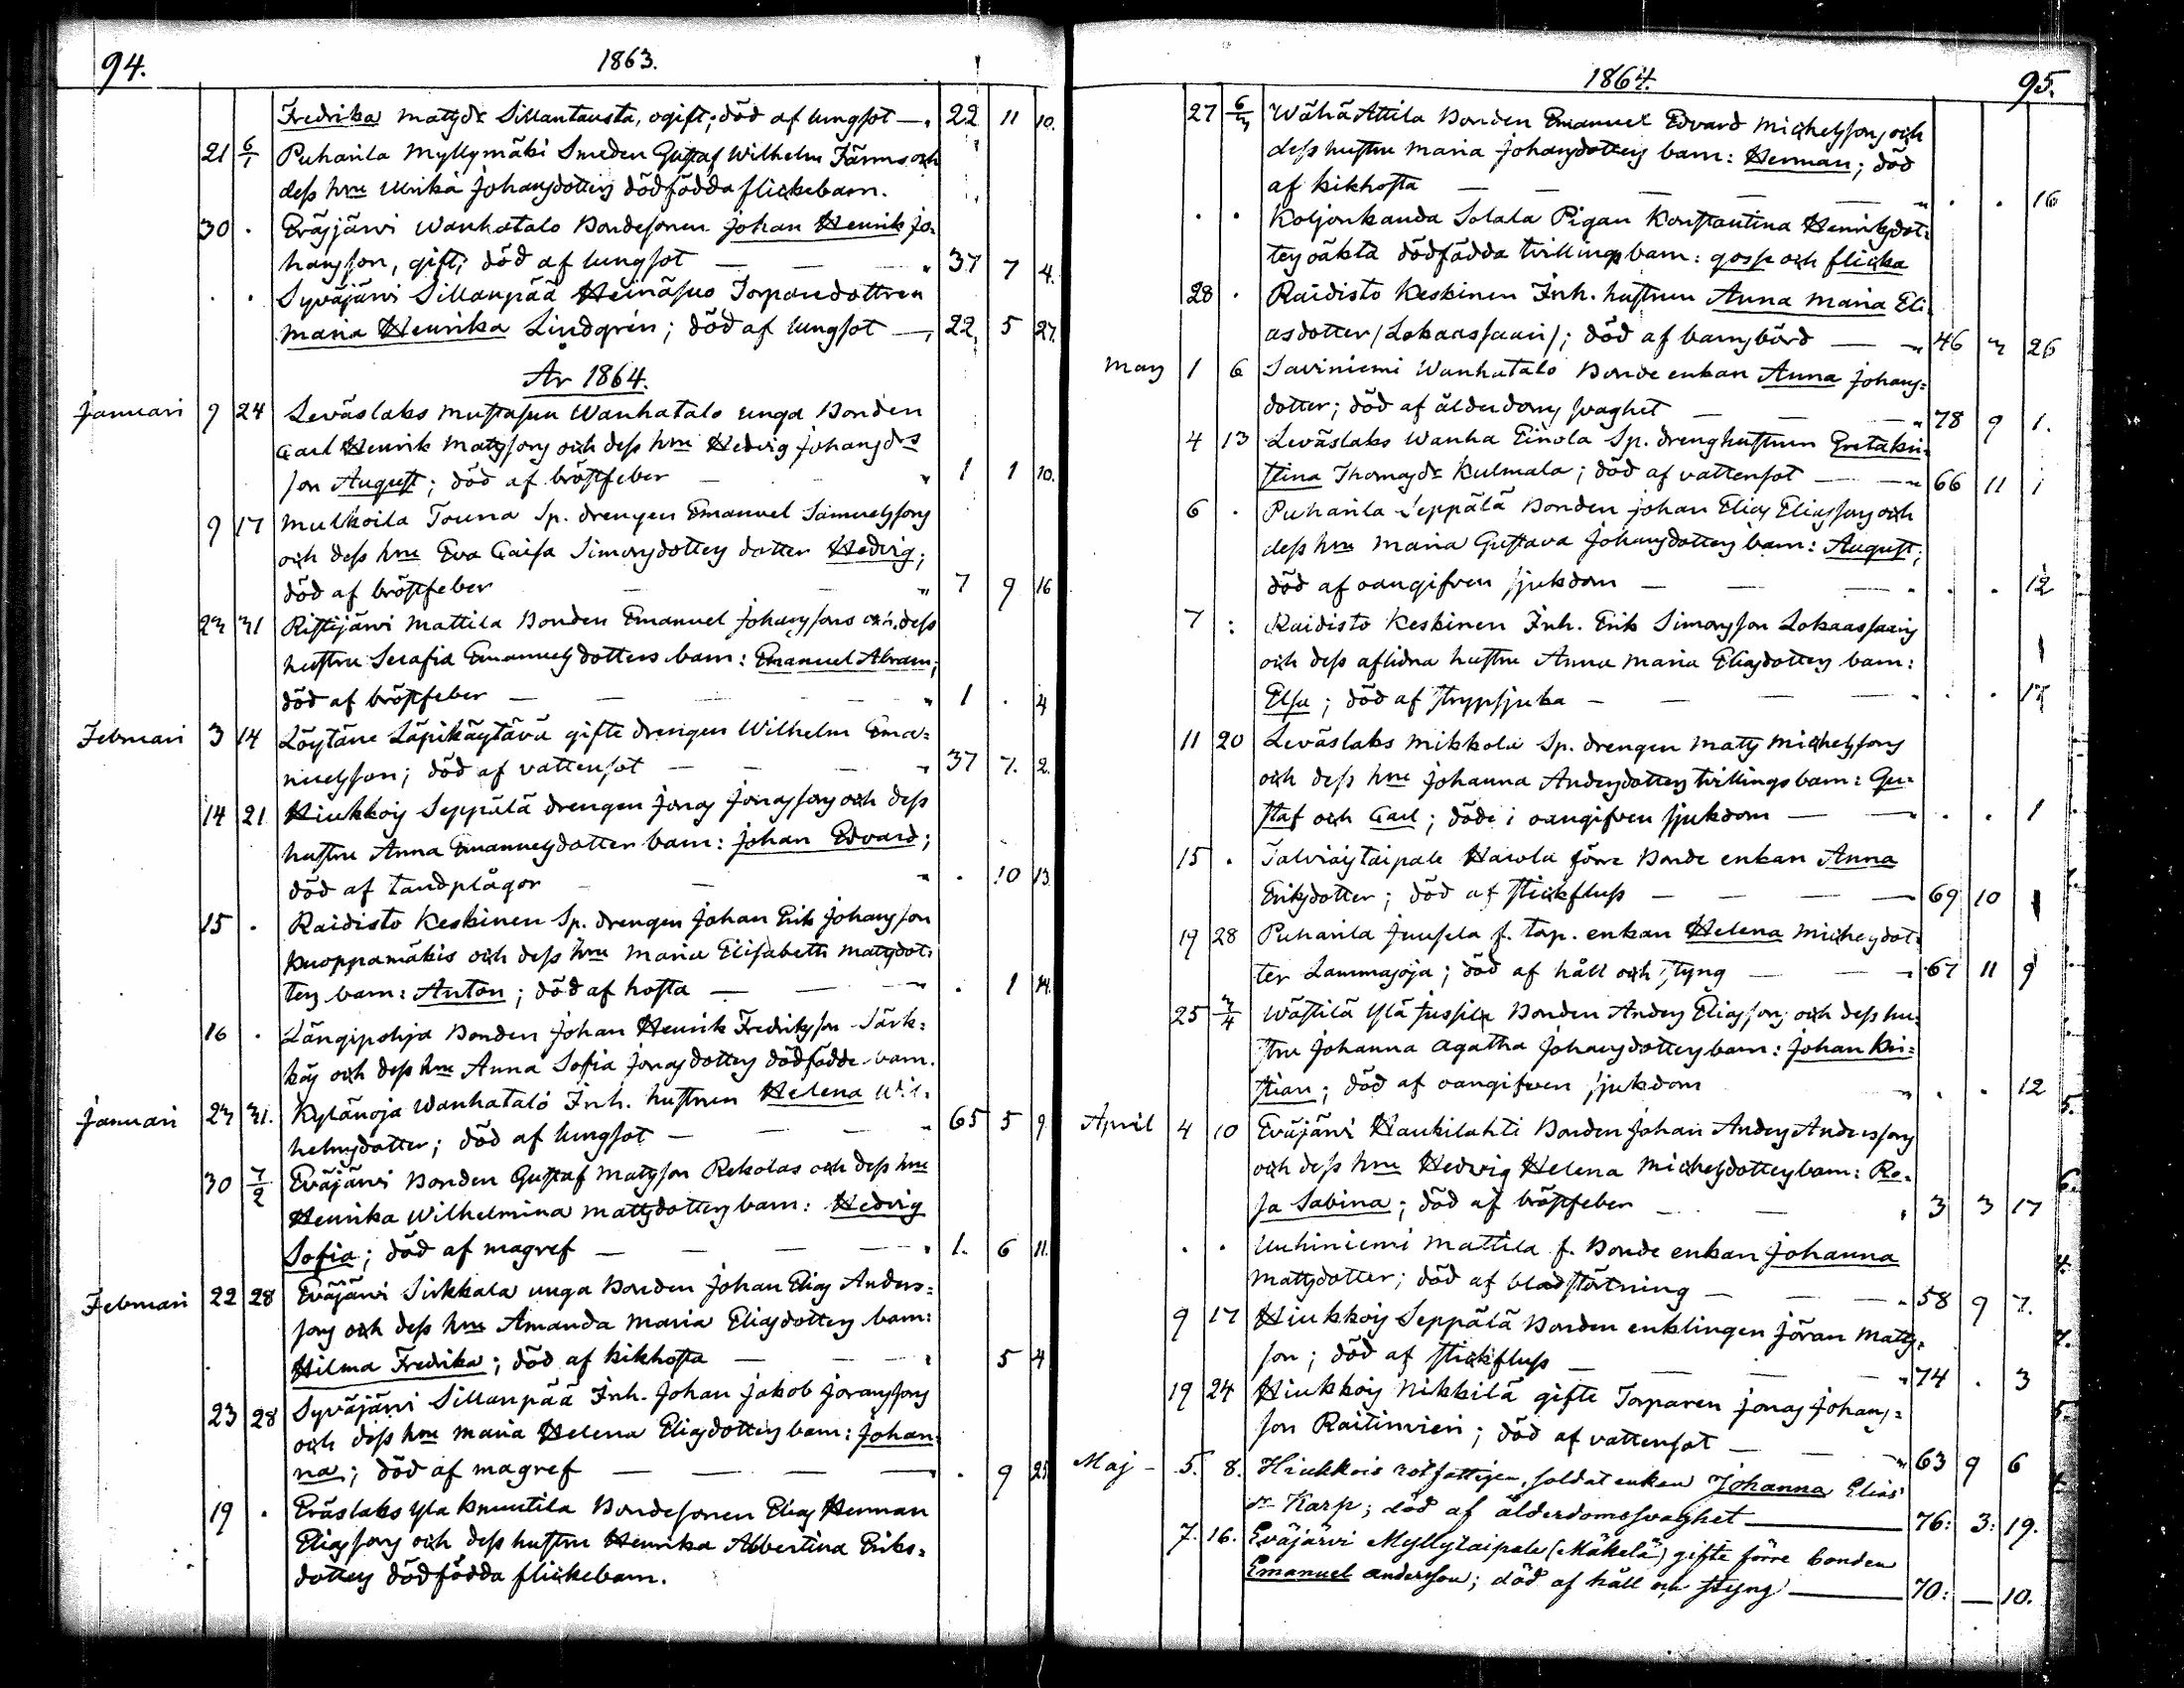 94.
1863.
Fredrika Matsdr Sillantausta, ogift; död af lungsot —„ 22 11 10.
21 6/1 Puharila Myllymäki Smeden Gustaf Wilhelm Färms och
dess hru Ulrika Johansdotters dödfödda flickebarn.
30 . Eräsjärvi Wanhatalo Bondesonen Johan Henrik Jo-
hansson, gift; död af lungsot — — „ 37 7 4.
. . Syväjärvi Sillanpää Heinäsuo Torparedottren
Maria Henrika Lindgrén; död af lungsot —„ 22 5 27.
År 1864.
Januari 9 24 Leväslaks Mustasuu Wanhatalo unga Bonden
Carl Henrik Matssons och dess hru Hedvig Johansdrs
son August; död af bröstfeber — „ 1 1 10.
9 17 Mulkoila Touna Sp. drengen Emanuel Samuelssons
och dess hru Eva Caisa Simonsdotters dotter Hedvig;
död af bröstfeber — — „ 7 9 16
23 31 Ristijärvi Mattila Bonden Emanuel Johanssons och dess
hustru Serafia Emanuelsdotters barn: Emanuel Abram;
död af bröstfeber — — — „ 1 . 4
Februari 3 14 Löytäne Läpikäytävä gifte drengen Wilhelm Ema=
nuelsson; död af vattensot — — — „ 37 7. 2.
14 21 Hiukkois Seppälä drengen Jonas Jonassons och dess
hustru Anna Emanuelsdotters barn: Johan Edvard;
död af tandplågor — — „ . 10 13
15 . Raidisto Keskinen Sp. drengen Johan Erik Johansson
Kuoppamäkis och dess hru Maria Elisabeth Matsdot-
ters barn: Anton; död af hosta — — „ . 1 14.
16 . Längipohja Bonden Johan Henrik Fredriksson Särk=
käs och dess hru Anna Sofia Jonasdotters dödfödde barn.
Januari 23 31. Kylänoja Wanhatalo Inh. hustrun Helena Wil-
helmsdotter; död af lungsot — — — „ 65 5 9
30 7/2 Eväjärvi Bonden Gustaf Matsson Rekolas och dess hru
Henrika Wilhelmina Mattsdotters barn: Hedvig
Sofia; död af magref — — — — „ 1. 6 11.
Februari 22 28 Eväjärvi Sirkkala unga Bonden Johan Elias Anders=
sons och dess hru Amanda Maria Eliasdotters barn:
Hilma Fredrika; död af kikhosta — — „ 5 4
23 28 Syväjärvi Sillanpää Inh. Johan Jakob Joranssons
och dess hru Maria Helena Eliasdotters barn: Johan-
na; död af magref — — — — . 9 25
19 . Eräslaks Yla Knuutila Bondesonen Elias Herman
Eliassons och dess hustru Henrika Albertina Eriks=
dotters dödfödda flickebarn.
1864.
95.
27 6/3 Wähä Attila Bonden Emanuel Edvard Michelssons och
dess hustru Maria Johansdotters barn: Herman; död
af kikhosta — — — — „ . . 16
. . Koljonkanda Solala Pigan Konstantina Henriksdot=
ters oäkta dödfödda tvillingsbarn: gosse och flicka
28 . Raidisto Keskinen Inh. hustrun Anna Maria Eli-
asdotter (Lokaassaari); död af barnsbörd — „ 46 3 26
Mars 1 6 Saviniemi Wanhatalo Bonde enkan Anna Johans=
dotter; död af ålderdoms svaghet — — „ 78 9 1.
4 13 Leväslaks Wanha Einola Sp. drenghustrun Greta Kri-
stina Thomasdr Kulmala; död af vattensot — „ 66 11 1
6 . Puharila Seppälä Bonden Johan Elias Eliassons och
dess hru Maria Gustava Johansdotters barn: August;
död af oangifven sjukdom — — — . . 12
7 : Raidisto Keskinen Inh. Erik Simonsson Lokaassaaris
och dess aflidna hustru Anna Maria Eliasdotters barn:
Elsa; död af strypsjuka — — — „ . . 17
11 20 Leväslaks Mikkola Sp. drengen Mats Michelssons
och dess hru Johanna Andersdotters tvillingsbarn: Gu=
staf och Carl; döde i oangifven sjukdom — „ . . 1
15 . Talviaistaipale Harola förre Bonde enkan Anna
Eriksdotter; död af stickfluss — — — 69 10
19 28 Puharila Juusela f. tap. enkan Helena Michelsdot=
ter Lammasoja; död af håll och styng — „ 67 11 9
25 3/4 Wästilä Ylä Jussila Bonden Anders Eliassons och dess hu-
stru Johanna Agatha Johansdotters barn: Johan Kri=
stian; död af oangifven sjukdom — „ . . 12
April 4 10 Eväjärvi Haukilahti Bonden Johan Anders Anderssons
och dess hru Hedvig Helena Michelsdotters barn: Ro-
sa Sabina; död af bröstfeber — — „ 3 3 17
. . Unhiniemi Mattila f. Bonde enkan Johanna
Mattsdotter; död af blodstörtning — — „ 58 9 7.
9 17 Hiukkois Seppälä Bonden enklingen Jöran Matts-
son; död af stickfluss — — — „ 74 . 3
19 24 Hiukkois Nikkilä gifte Torparen Jonas Johans=
son Raitinvieri; död af vattensot — — „ 63 9 6
Maj - 5. 8. Hiukkois rotfattigen, soldatenkan Johanna Elias
dr Karp; död af ålderdomssvaghet — 76: 3: 19.
7. 16. Eväjärvi Myllytaipale (Mäkelä) gifte förre bonden
Emanuel Andersson; död af håll och styng — 70: — 10.